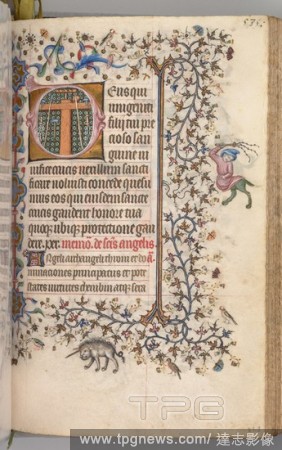 575.
Deus qui
unigeniti
filii tui pre
cioso san
guine vi
ficare voluisti concede quesu
mus eos qui eiusdem sancte
crucis gaudent honore tua
quoque ubique protectione gau
dere. per. memo. de scis angelis
Angeli archangeli throni et do
minaciones principatus et pote
states virtutes cherubin atque sera
TPG
www.tpgnews.com/ 達志影像